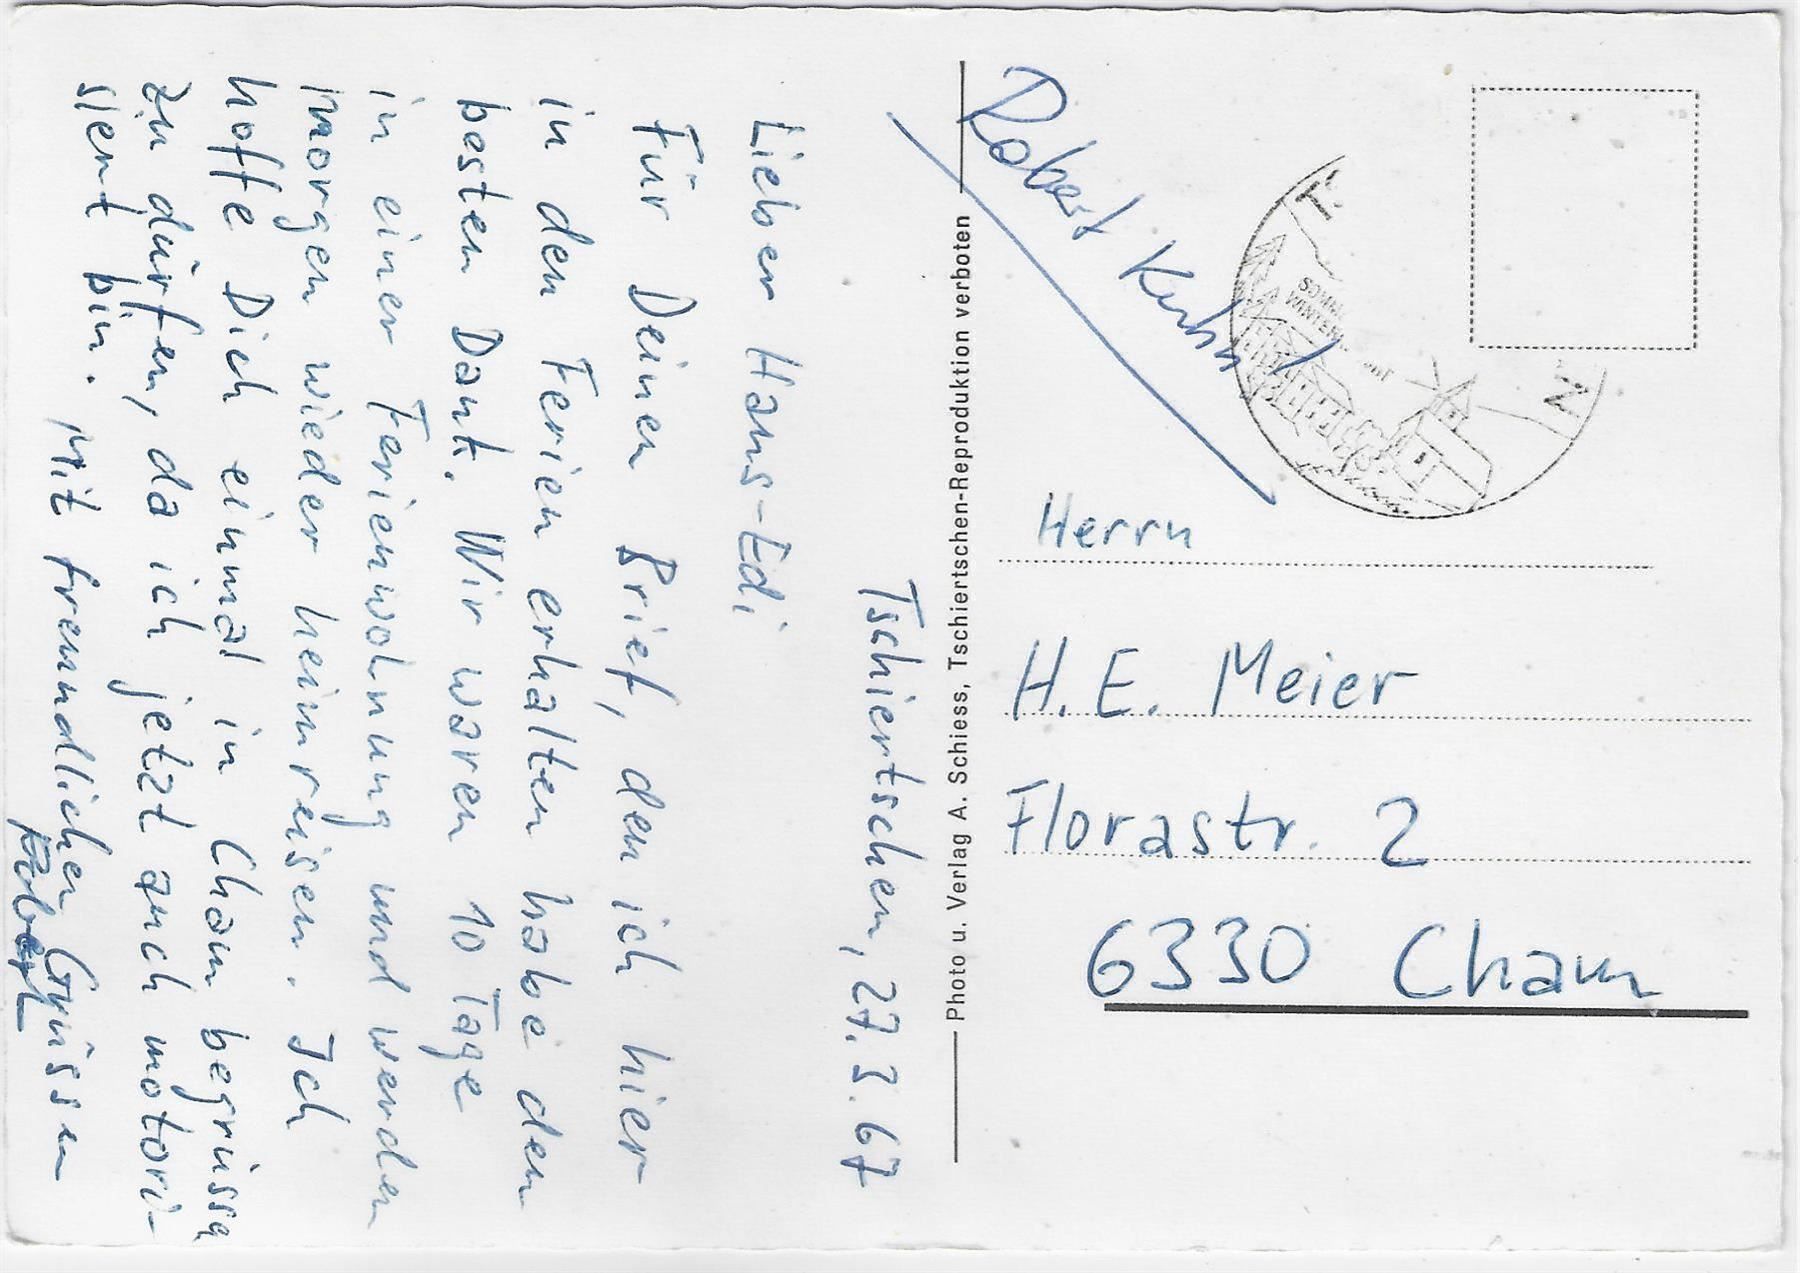 Tschiertschen, 27.3.67
Lieber Hans-Edi
Für Deinen Brief, den ich hier
in den Ferien erhalten habe den
besten Dank. Wir waren 10 Tage
in einer Ferienwohnung und werden
morgen wieder heimreisen. Ich
hoffe Dich einmal in Cham begrüssen
zu dürfen, da ich jetzt auch motori-
siert bin. Mit freundlichen Grüssen
Robert
Photo u. Verlag A. Schiess, Tschiertschen-Reproduktion verboten
Robert Kuhn
Herrn
H. E. Meier
Florastr. 2
6330 Cham